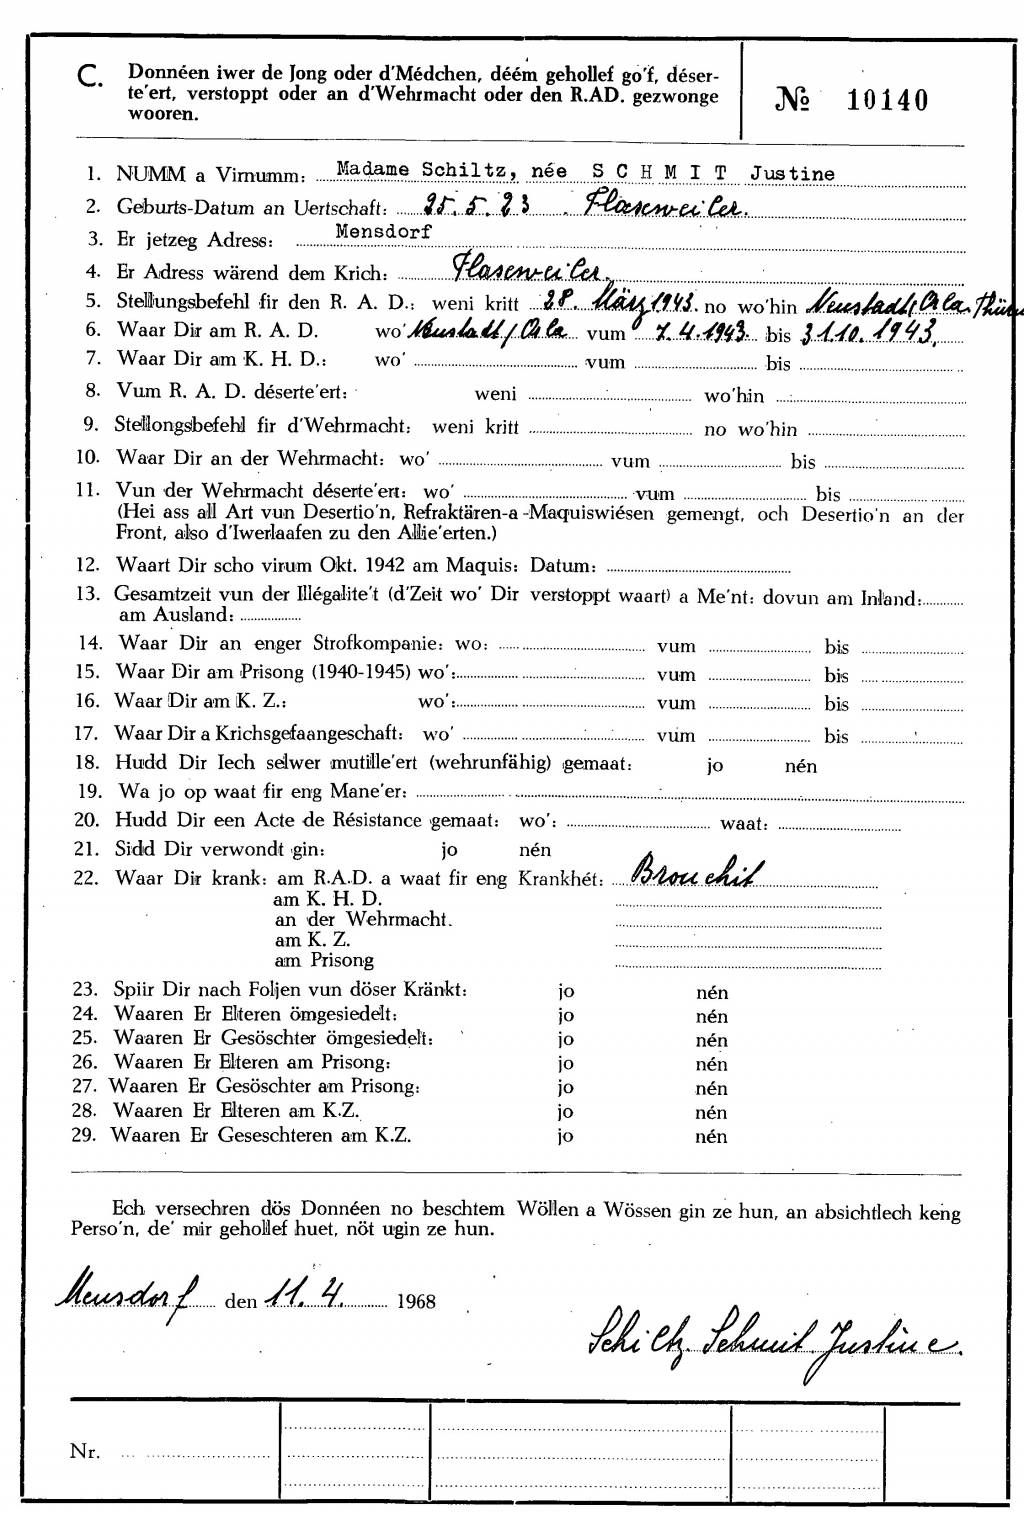 C. Donnéen iwer de Jong oder d'Médchen, déém gehollef go'f, déser-
te'ert, verstoppt oder an d'Wehrmacht oder den R.AD. gezwonge
wooren.
№ 10140
1. NUMM a Virnumm: Madame Schiltz, née S C H M I T Justine
2. Geburts-Datum an Uertschaft: 25.5.23. Flaxweiler.
3. Er jetzeg Adress: Mensdorf
4. Er Adress wärend dem Krich: Flaxweiler.
5. Stellungsbefehl fir den R. A. D.: weni kritt 28. März 1943. no wo'hin Neustadt/Orla Thür
6. Waar Dir am R. A. D. wo' Neustadt/Orla vum 7.4.1943. bis 31.10.1943.
7. Waar Dir am K. H. D.: wo' vum bis
8. Vum R. A. D. déserte'ert: weni wo'hin
9. Stellongsbefehl fir d'Wehrmacht: weni kritt no wo'hin
10. Waar Dir an der Wehrmacht: wo' vum bis
11. Vun der Wehrmacht déserte'ert: wo' vum bis
(Hei ass all Art vun Desertio'n, Refraktären-a-Maquiswiésen gemengt, och Desertio'n an der
Front, also d'Iwerlaafen zu den Allie'erten.)
12. Waart Dir scho virum Okt. 1942 am Maquis: Datum:
13. Gesamtzeit vun der Illégalite't (d'Zeit wo' Dir verstoppt waart) a Me'nt: dovun am Inland:
am Ausland:
14. Waar Dir an enger Strofkompanie: wo: vum bis
15. Waar Dir am Prisong (1940-1945) wo': vum bis
16. Waar Dir am K. Z.: wo': vum bis
17. Waar Dir a Krichsgefaangeschaft: wo' vum bis
18. Hudd Dir Iech selwer mutille'ert (wehrunfähig) gemaat: jo nén
19. Wa jo op waat fir eng Mane'er:
20. Hudd Dir een Acte de Résistance gemaat: wo': waat:
21. Sidd Dir verwondt gin: jo nén
22. Waar Dir krank: am R.A.D. a waat fir eng Krankhét: Bronchit
am K. H. D.
an der Wehrmacht.
am K. Z.
am Prisong
23. Spiir Dir nach Foljen vun döser Kränkt: jo nén
24. Waaren Er Elteren ömgesiedelt: jo nén
25. Waaren Er Gesöschter ömgesiedelt: jo nén
26. Waaren Er Elteren am Prisong: jo nén
27. Waaren Er Gesöschter am Prisong: jo nén
28. Waaren Er Elteren am K.Z. jo nén
29. Waaren Er Geseschteren am K.Z. jo nén
Ech versechren dös Donnéen no beschtem Wöllen a Wössen gin ze hun, an absichtlech keng
Perso'n, de' mir gehollef huet, nöt ugin ze hun.
Mensdorf den 11.4. 1968
Schiltz. Schmit. Justine.
Nr.